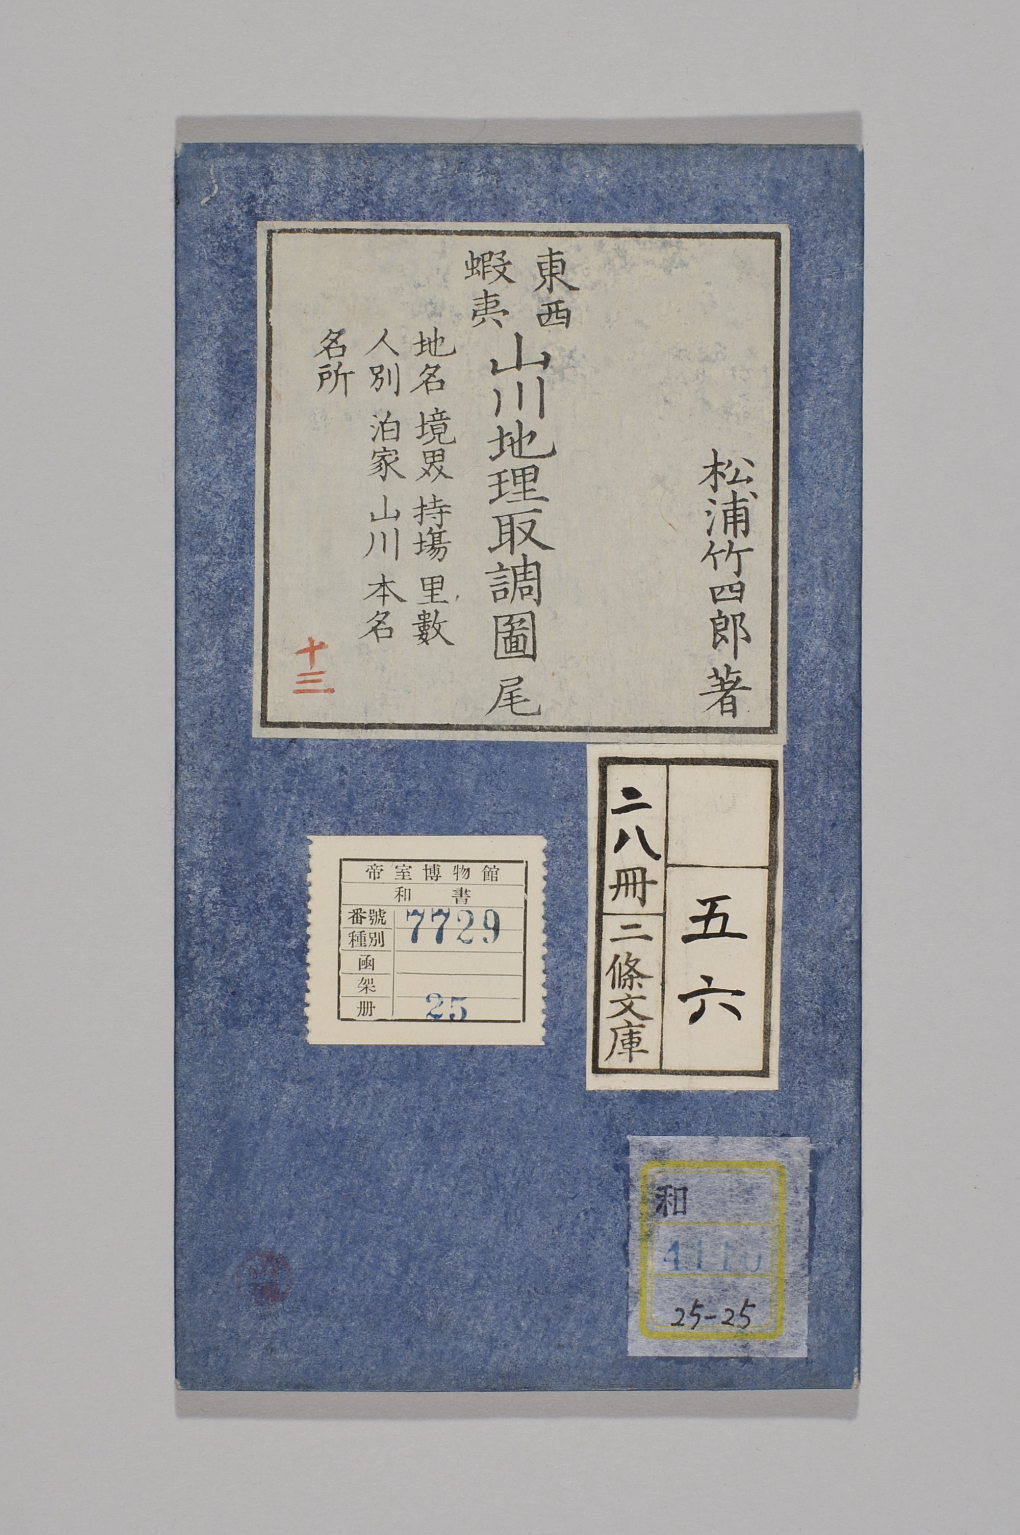 松浦竹四郎著
東西
蝦夷
山川地理取調圖 尾
地名 境界 持塲 里數
人別 泊家 山川 本名
名所
十三
五六
二八冊
二條文庫
帝室博物館
和書
番號 7729
種別
函
架
册 25
和
4110
25-25